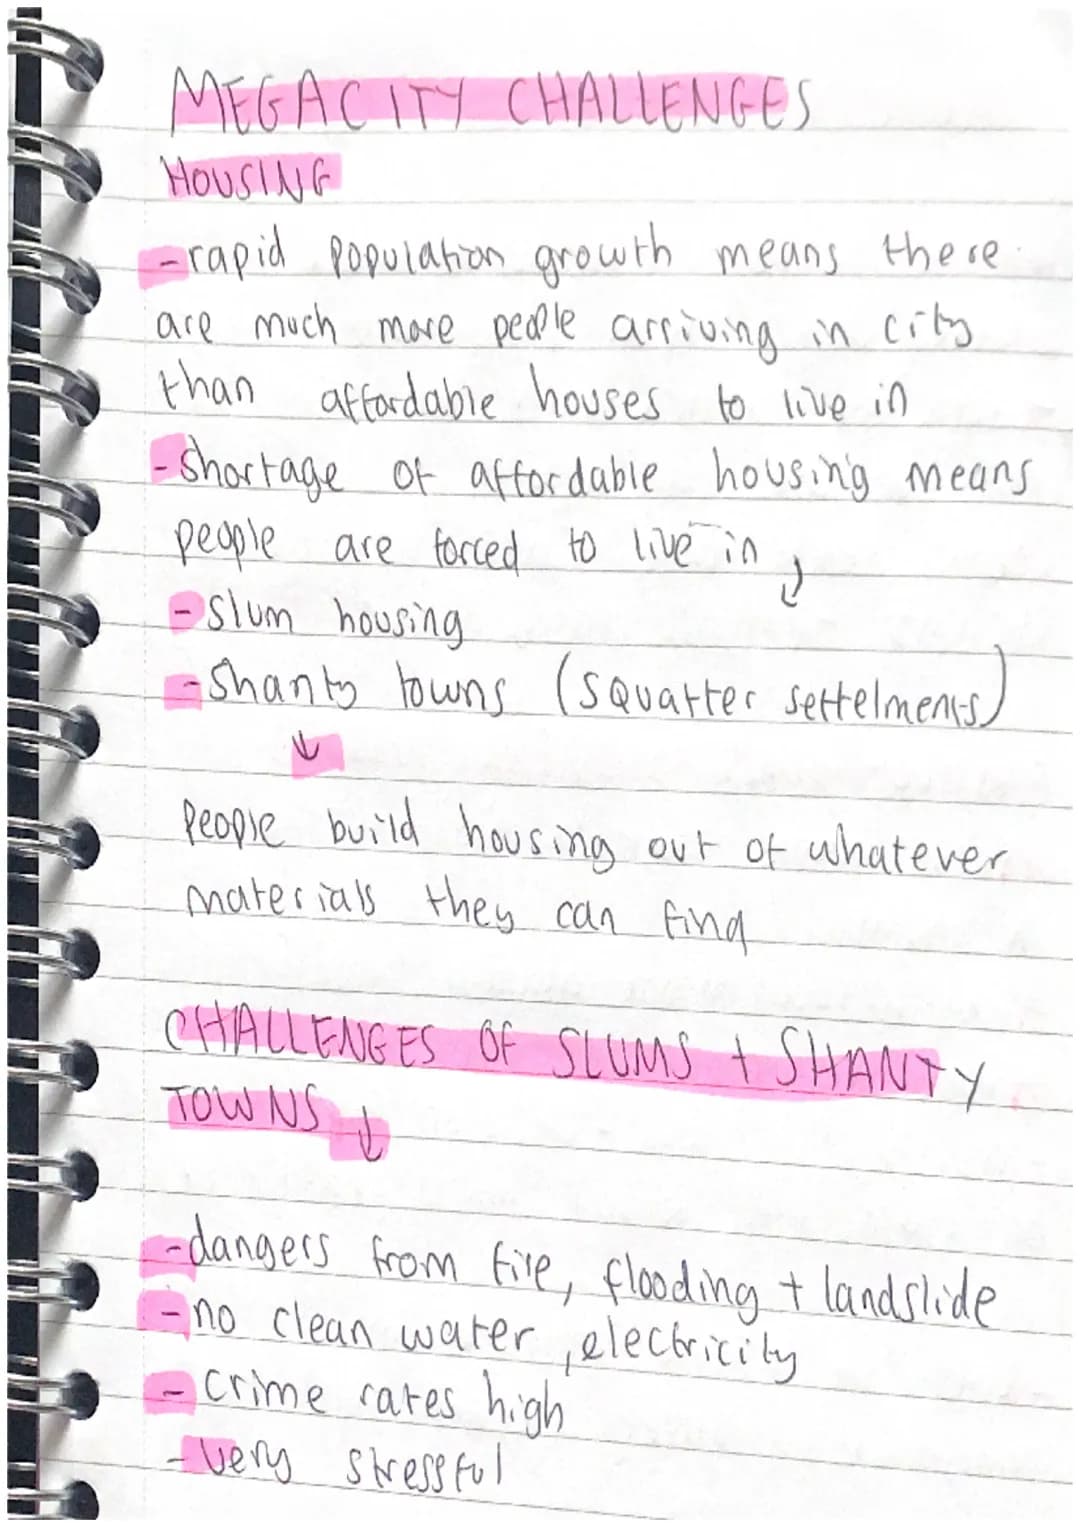 MEGACITY CHALLENGES
HOUSING
- rapid population growth means there
are much more people arriving in city
than affordable houses to live in
- Shortage of affordable housing means
people are forced to live in ↓
- slum housing
- Shanty towns (squatter settelments)
↓
People build housing out of whatever
materials they can find
CHALLENGES OF SLUMS + SHANTY
TOWNS ↓
- dangers from fire, flooding + landslide
- no clean water, electricity
- crime rates high
- very stressful